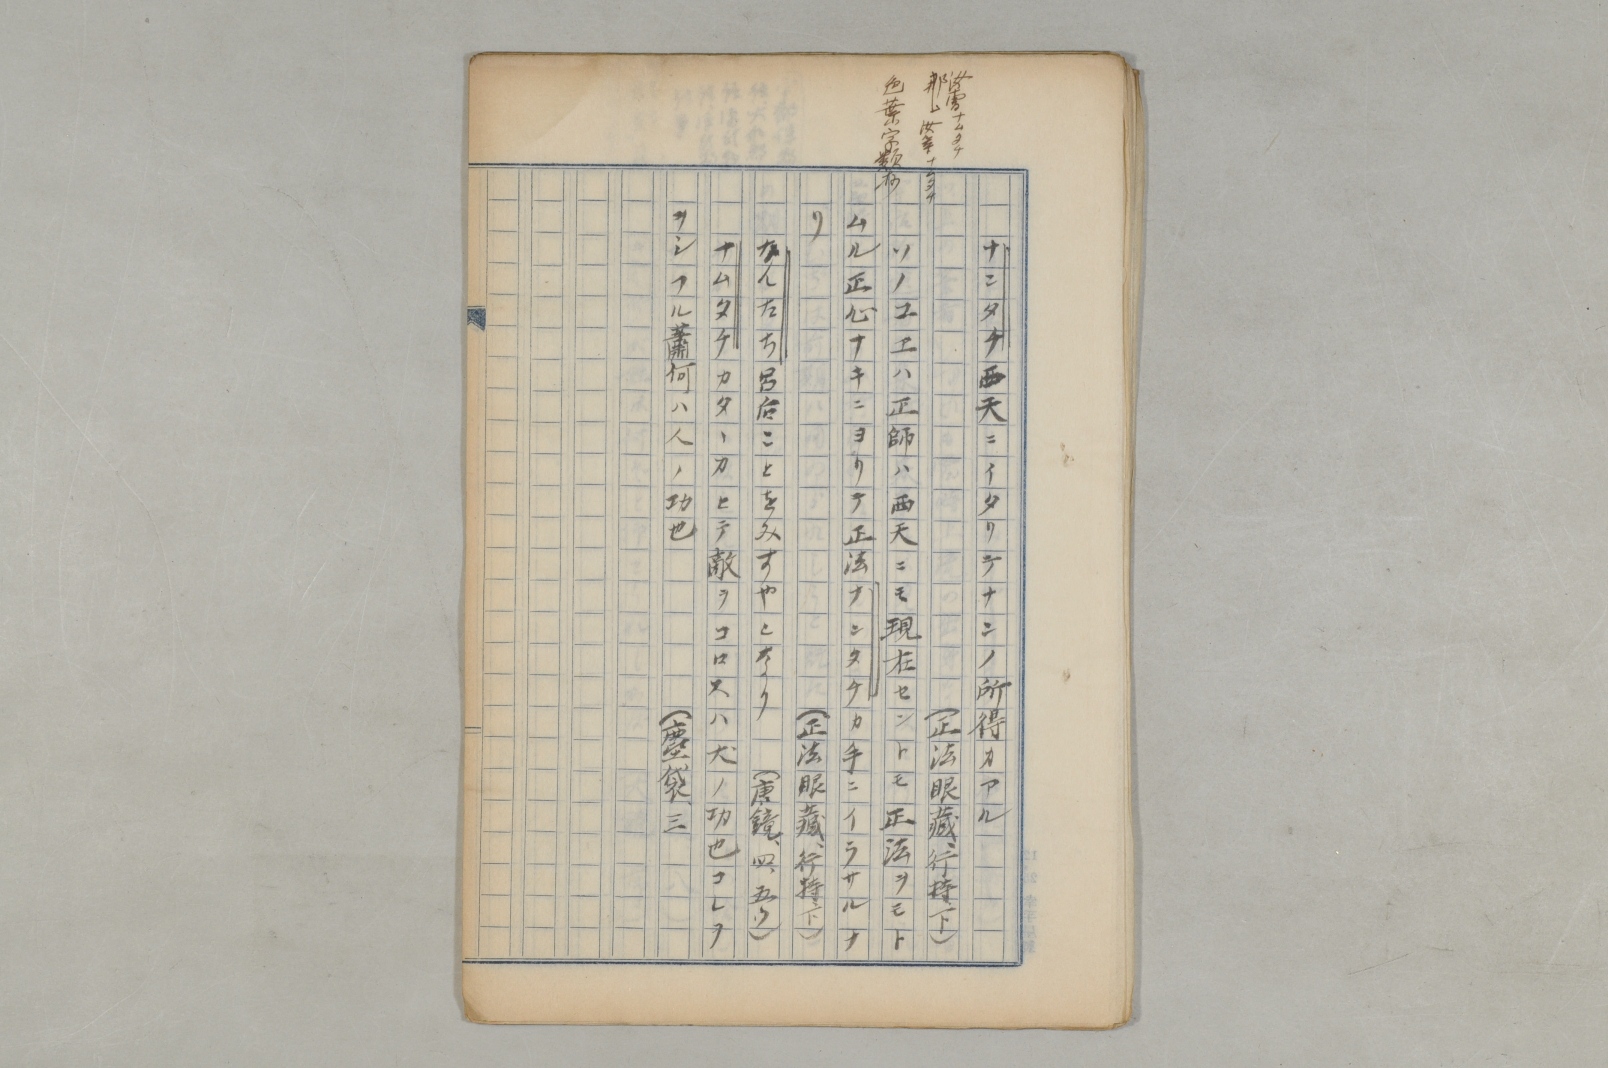 汝曹ナムタチ
那㞮汝等ナムタチ
色葉字類抄
ナンタチ西天ニイタリテナンノ所得カアル
(正法眼蔵、行持、下)
ソノユヱハ正師ハ西天ニモ現在セントモ正法ヲモト
ムル正心ナキニヨリテ正法ナンタチカ手ニイラサルナ
リ
(正法眼蔵、行持、下)
なんたち呂后ことをみすやとなり
(唐鏡、四、五ウ)
ナムタチカタヽカヒテ敵ヲコロスハ犬ノ功也コレヲ
ヲシフル蕭何ハ人ノ功也
(塵袋、三